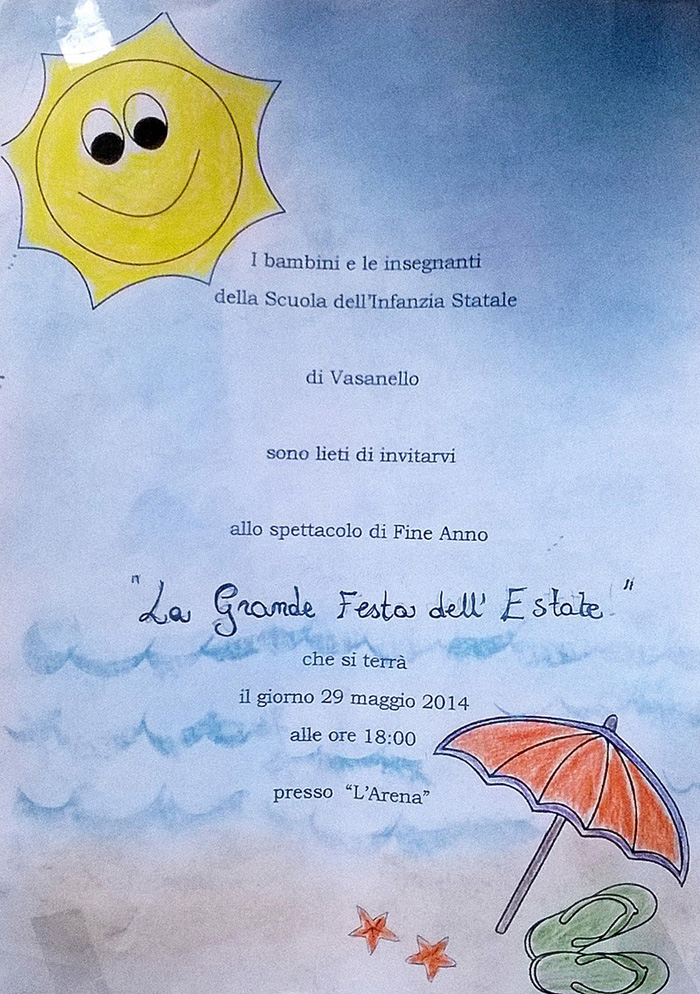 I bambini e le insegnanti
della Scuola dell'Infanzia Statale
di Vasanello
sono lieti di invitarvi
allo spettacolo di Fine Anno
"La Grande Festa dell' Estate"
che si terrà
il giorno 29 maggio 2014
alle ore 18:00
presso "L'Arena"